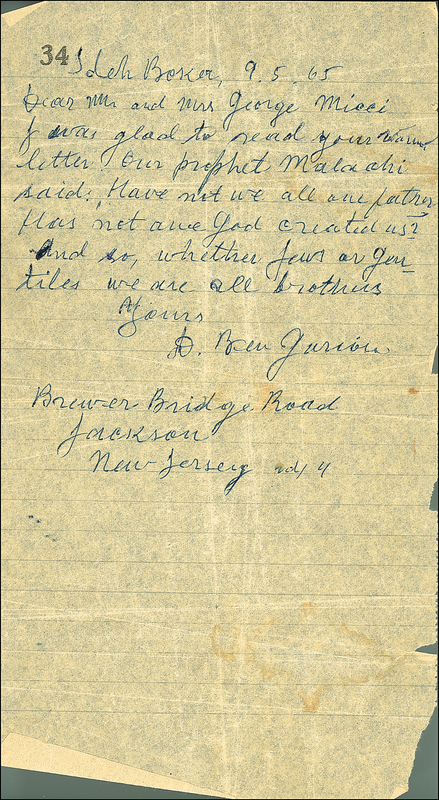 34 Sdeh Boker, 9.5.65
Dear Mr and Mrs George Micci
I was glad to read your warm
letter. Our prophet Malachi
said: "Have not we all one father
Has not one God created us?"
And so, whether Jews or Gen-
tiles we are all brothers
Yours
D. Ben Gurion
Brewer Bridge Road
Jackson
New Jersey rd 4